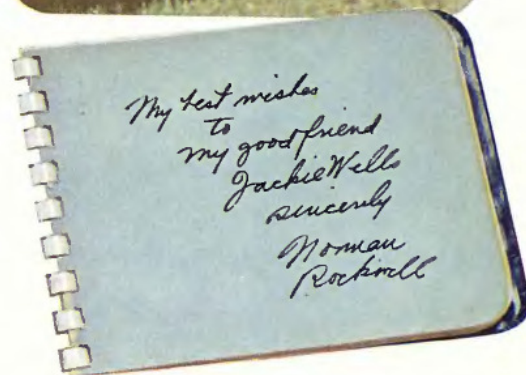 My best wishes
to
my good friend
Jackie Wells
sincerely
Norman
Rockwell